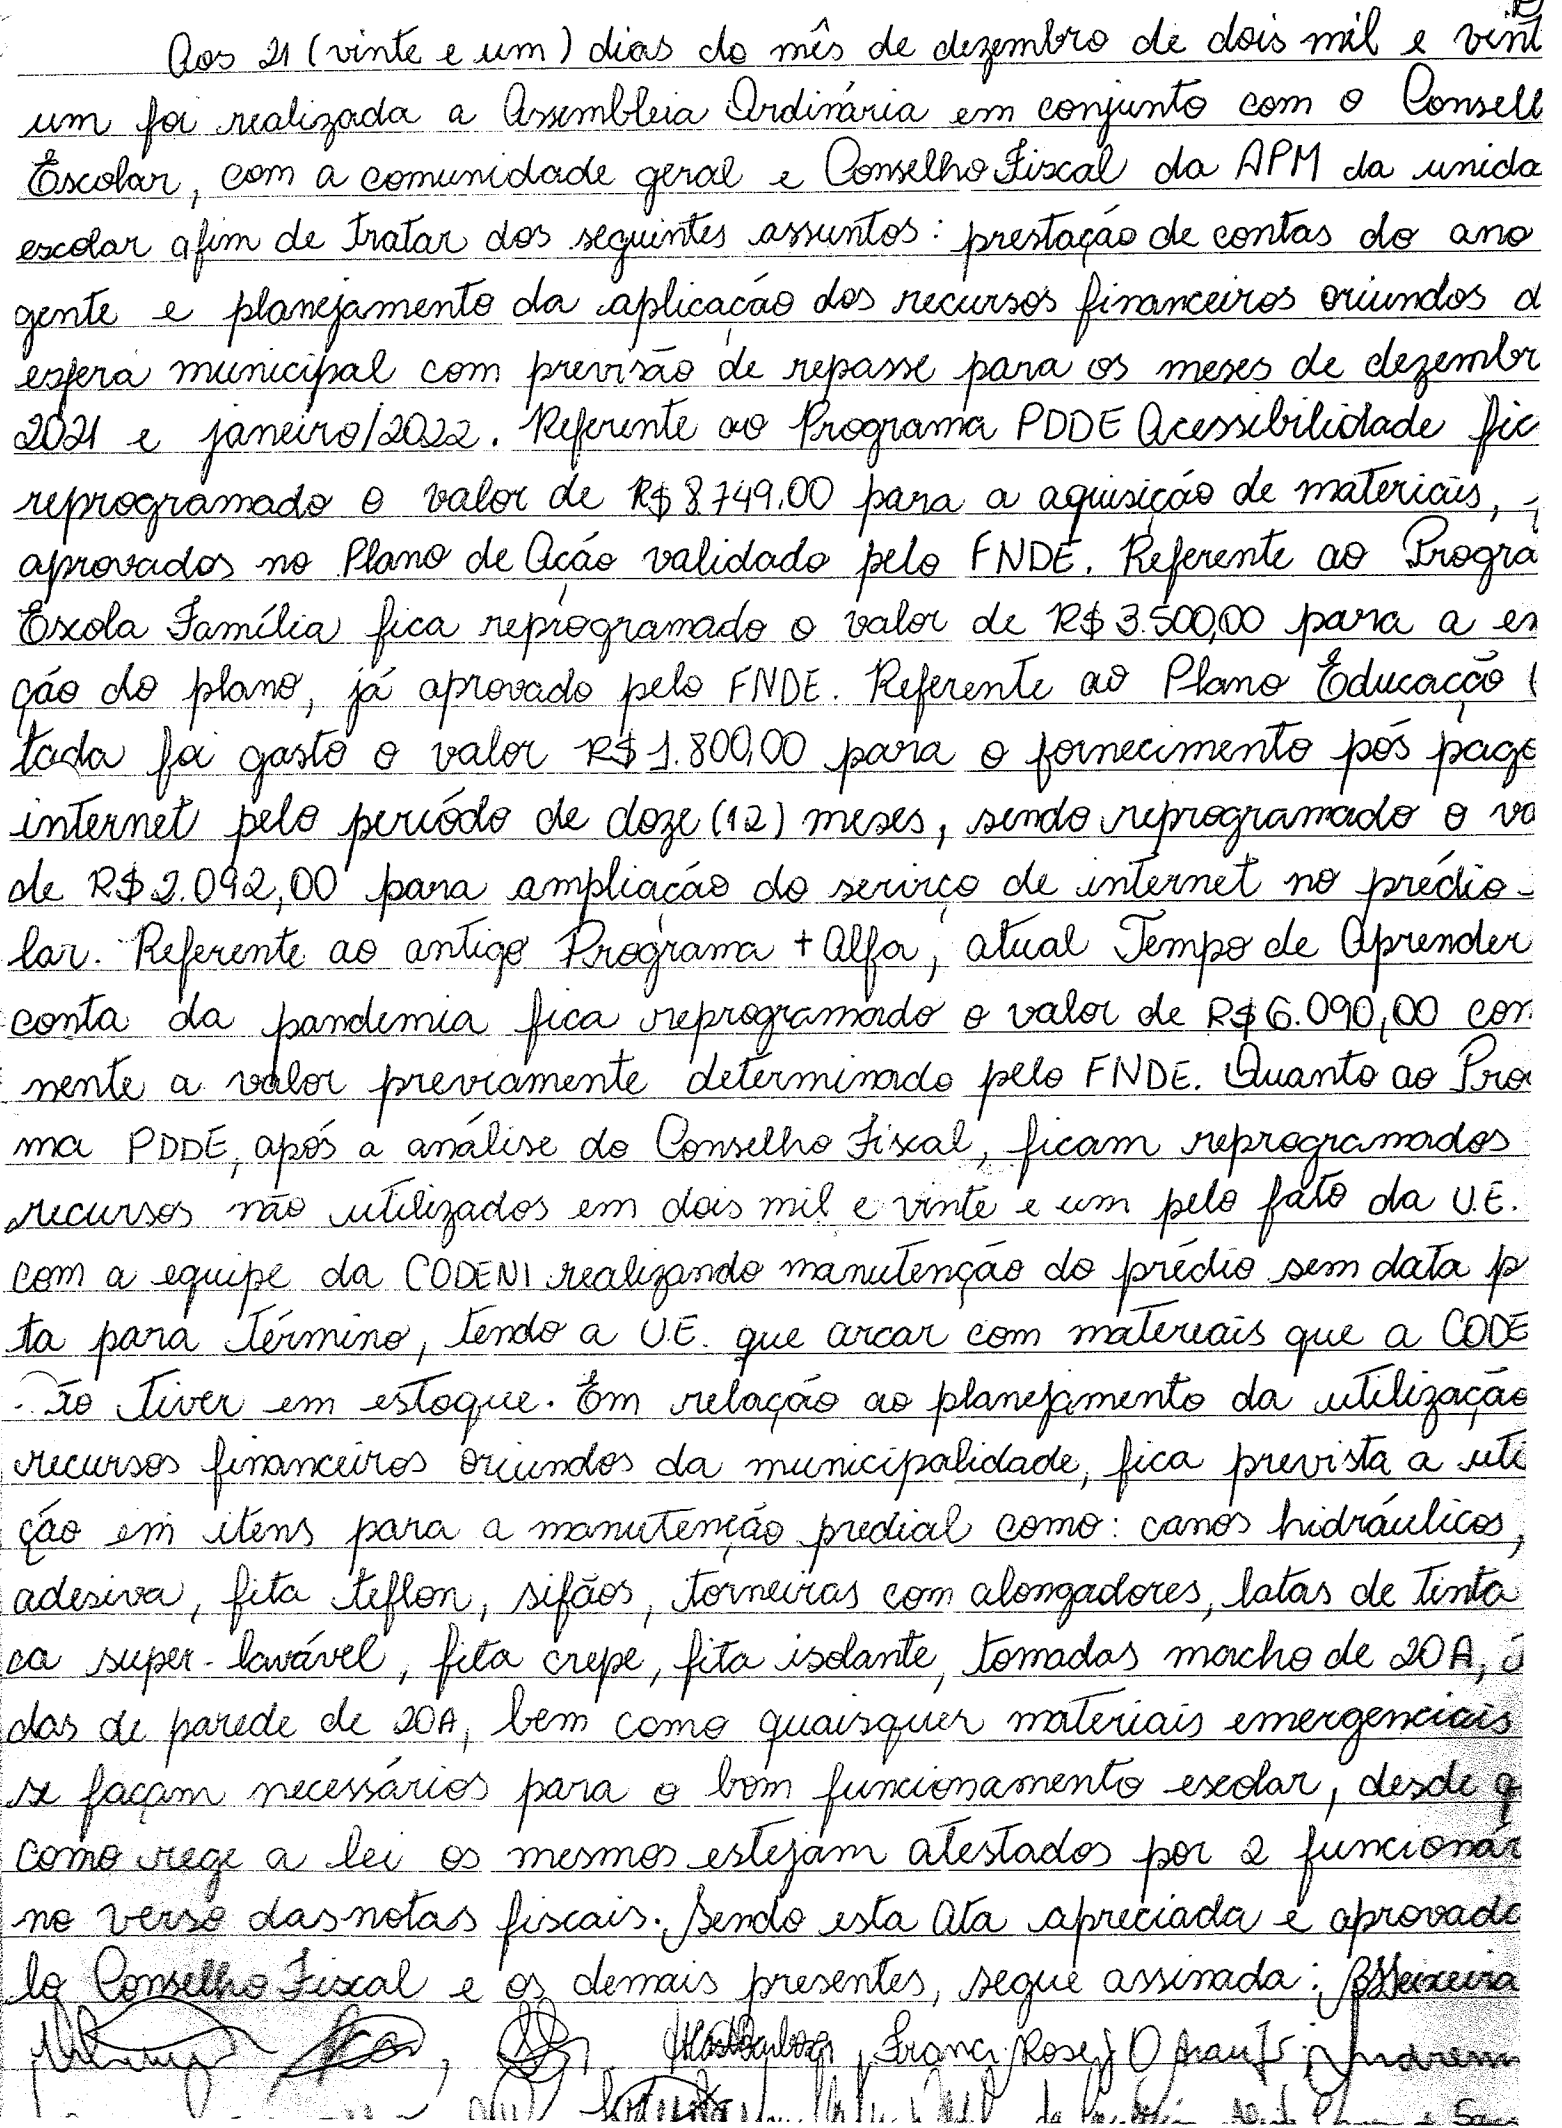 Aos 21 (vinte e um) dias do mês de dezembro de dois mil e vint
um foi realizada a Assembleia Ordinária em conjunto com o Consell
Escolar, com a comunidade geral e Conselho Fiscal da APM da unida
escolar afim de tratar dos seguintes assuntos: prestação de contas do ano
gente e planejamento da aplicação dos recursos financeiros oriundos d
esfera municipal com previsão de repasse para os meses de dezembr
2021 e janeiro/2022. Referente ao Programa PDDE Acessibilidade fic
reprogramado o valor de R$ 8.749,00 para a aquisição de materiais,
aprovados no Plano de Ação validado pelo FNDE. Referente ao Progra
Escola Família fica reprogramado o valor de R$ 3.500,00 para a ex
ção do plano, já aprovado pelo FNDE. Referente ao Plano Educação
tada foi gasto o valor R$ 1.800,00 para o fornecimento pós pago
internet pelo período de doze (12) meses, sendo reprogramado o va
de R$ 2.092,00 para ampliação do serviço de internet no prédio
lar. Referente ao antigo Programa + Alfa, atual Tempo de Aprender
conta da pandemia fica reprogramado o valor de R$ 6.090,00 con
nente a valor previamente determinado pelo FNDE. Quanto ao Pro
ma PDDE, após a análise do Conselho Fiscal, ficam reprogramados
recursos não utilizados em dois mil e vinte e um pelo fato da U.E.
com a equipe da CODENI realizando manutenção do prédio sem data p
ta para término, tendo a U.E. que arcar com materiais que a CODE
ão tiver em estoque. Em relação ao planejamento da utilização
recursos financeiros oriundos da municipalidade, fica prevista a uti
ção em itens para a manutenção predial como: canos hidráulicos,
adesiva, fita teflon, sifãos, torneiras com alongadores, latas de tinta
ca super-lavável, fita crepe, fita isolante, tomadas macho de 20A,
das de parede de 20A, bem como quaisquer materiais emergenciais
se façam necessários para o bom funcionamento escolar, desde q
como rege a lei os mesmos estejam atestados por 2 funcionár
no verso das notas fiscais. Sendo esta Ata apreciada e aprovada
lo Conselho Fiscal e os demais presentes, segue assinada: